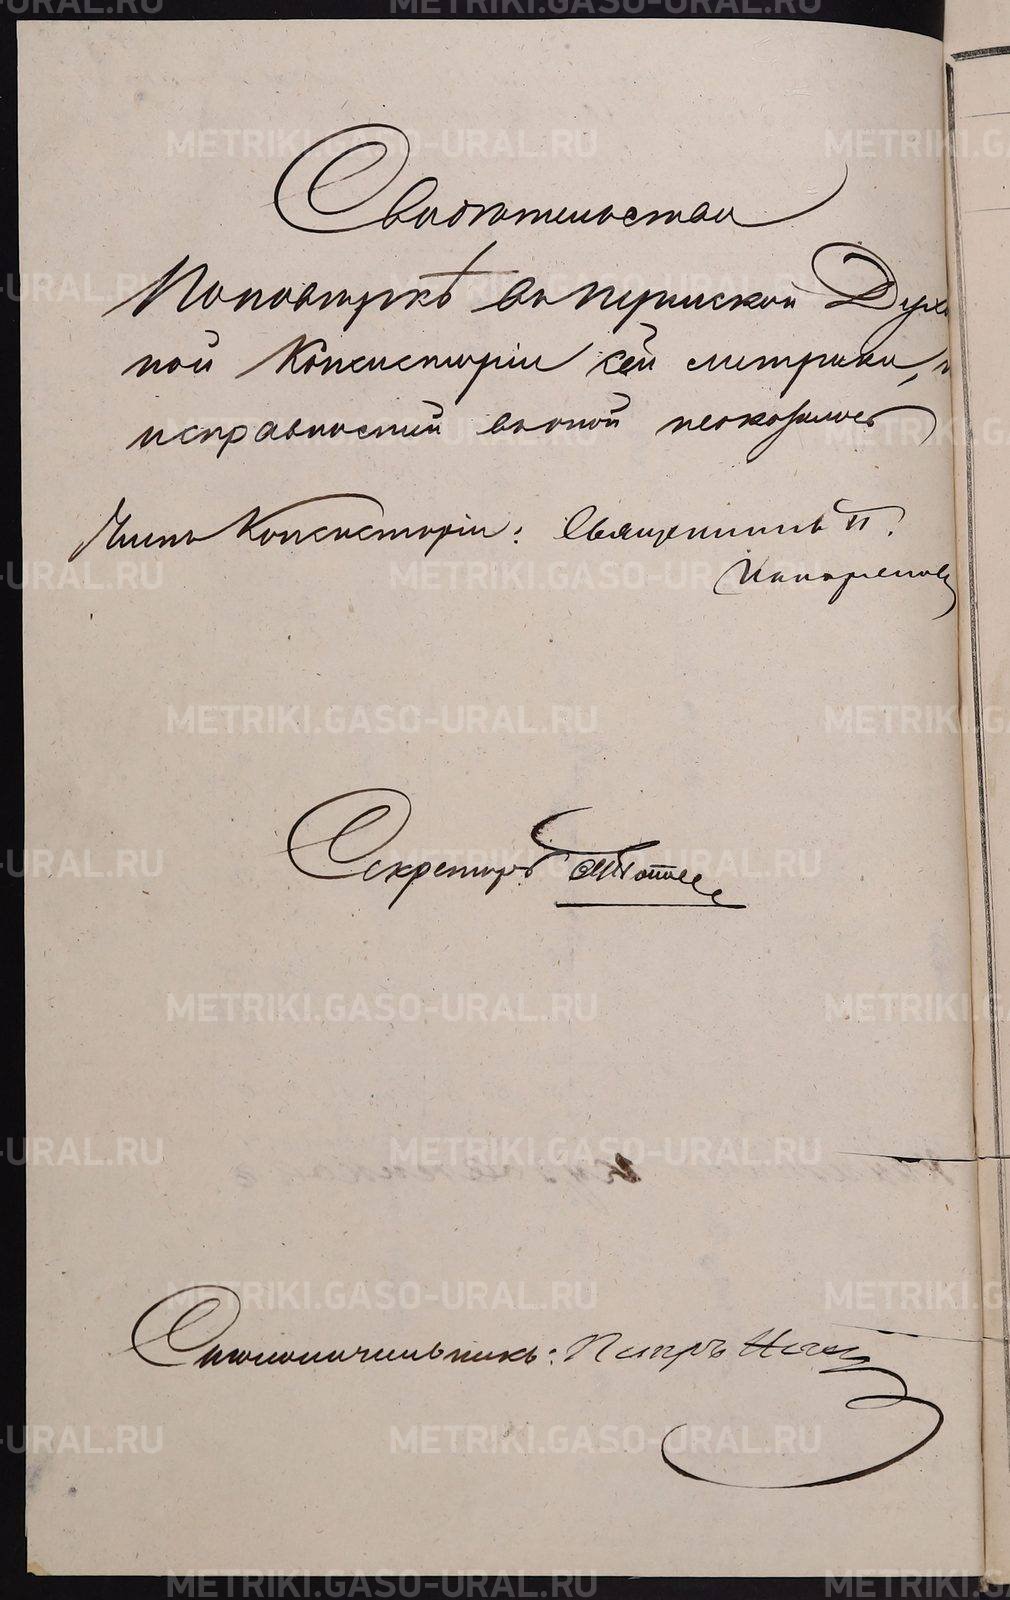 Свидѣтельство
По повѣркѣ въ Пермской Духов
ной Консисторіи сей метрики, не
исправностей въ оной не оказалось
Членъ Консисторіи: Священникъ П.
Секретарь
Столоначальникъ: Петръ
METRIKI.GASO-URAL.RU